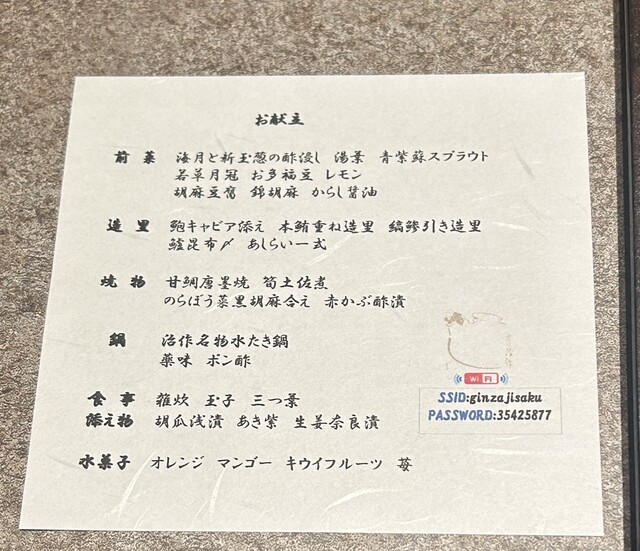 お献立
前菜 海月と新玉葱の酢浸し 湯葉 青紫蘇スプラウト
若草月冠 お多福豆 レモン
胡麻豆腐 錦胡麻 からし醤油
造里 鮑キャビア添え 本鮪重ね造里 縞鯵引き造里
鱸昆布〆 あしらい一式
焼物 甘鯛唐墨焼 筍土佐煮
のらぼう菜黒胡麻合え 赤かぶ酢漬
鍋 治作名物水たき鍋
薬味 ポン酢
食事 雑炊 玉子 三つ葉
添え物 胡瓜浅漬 あき紫 生姜奈良漬
水菓子 オレンジ マンゴー キウイフルーツ 苺
WiFi
SSID:ginzajisaku
PASSWORD:35425877